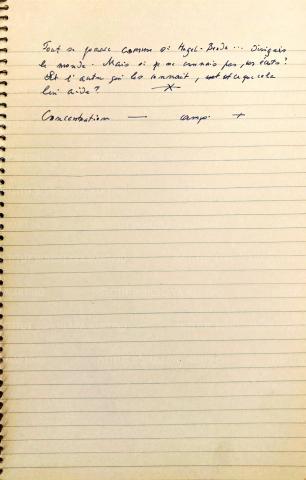 Tout se passe comme si Hegel - Broda... dirigeais
le monde. Mais si je ne connais pas, ces écrits?
Et l'autre qui les connait, est ce que cela
lui aide?
Concentration — camp +